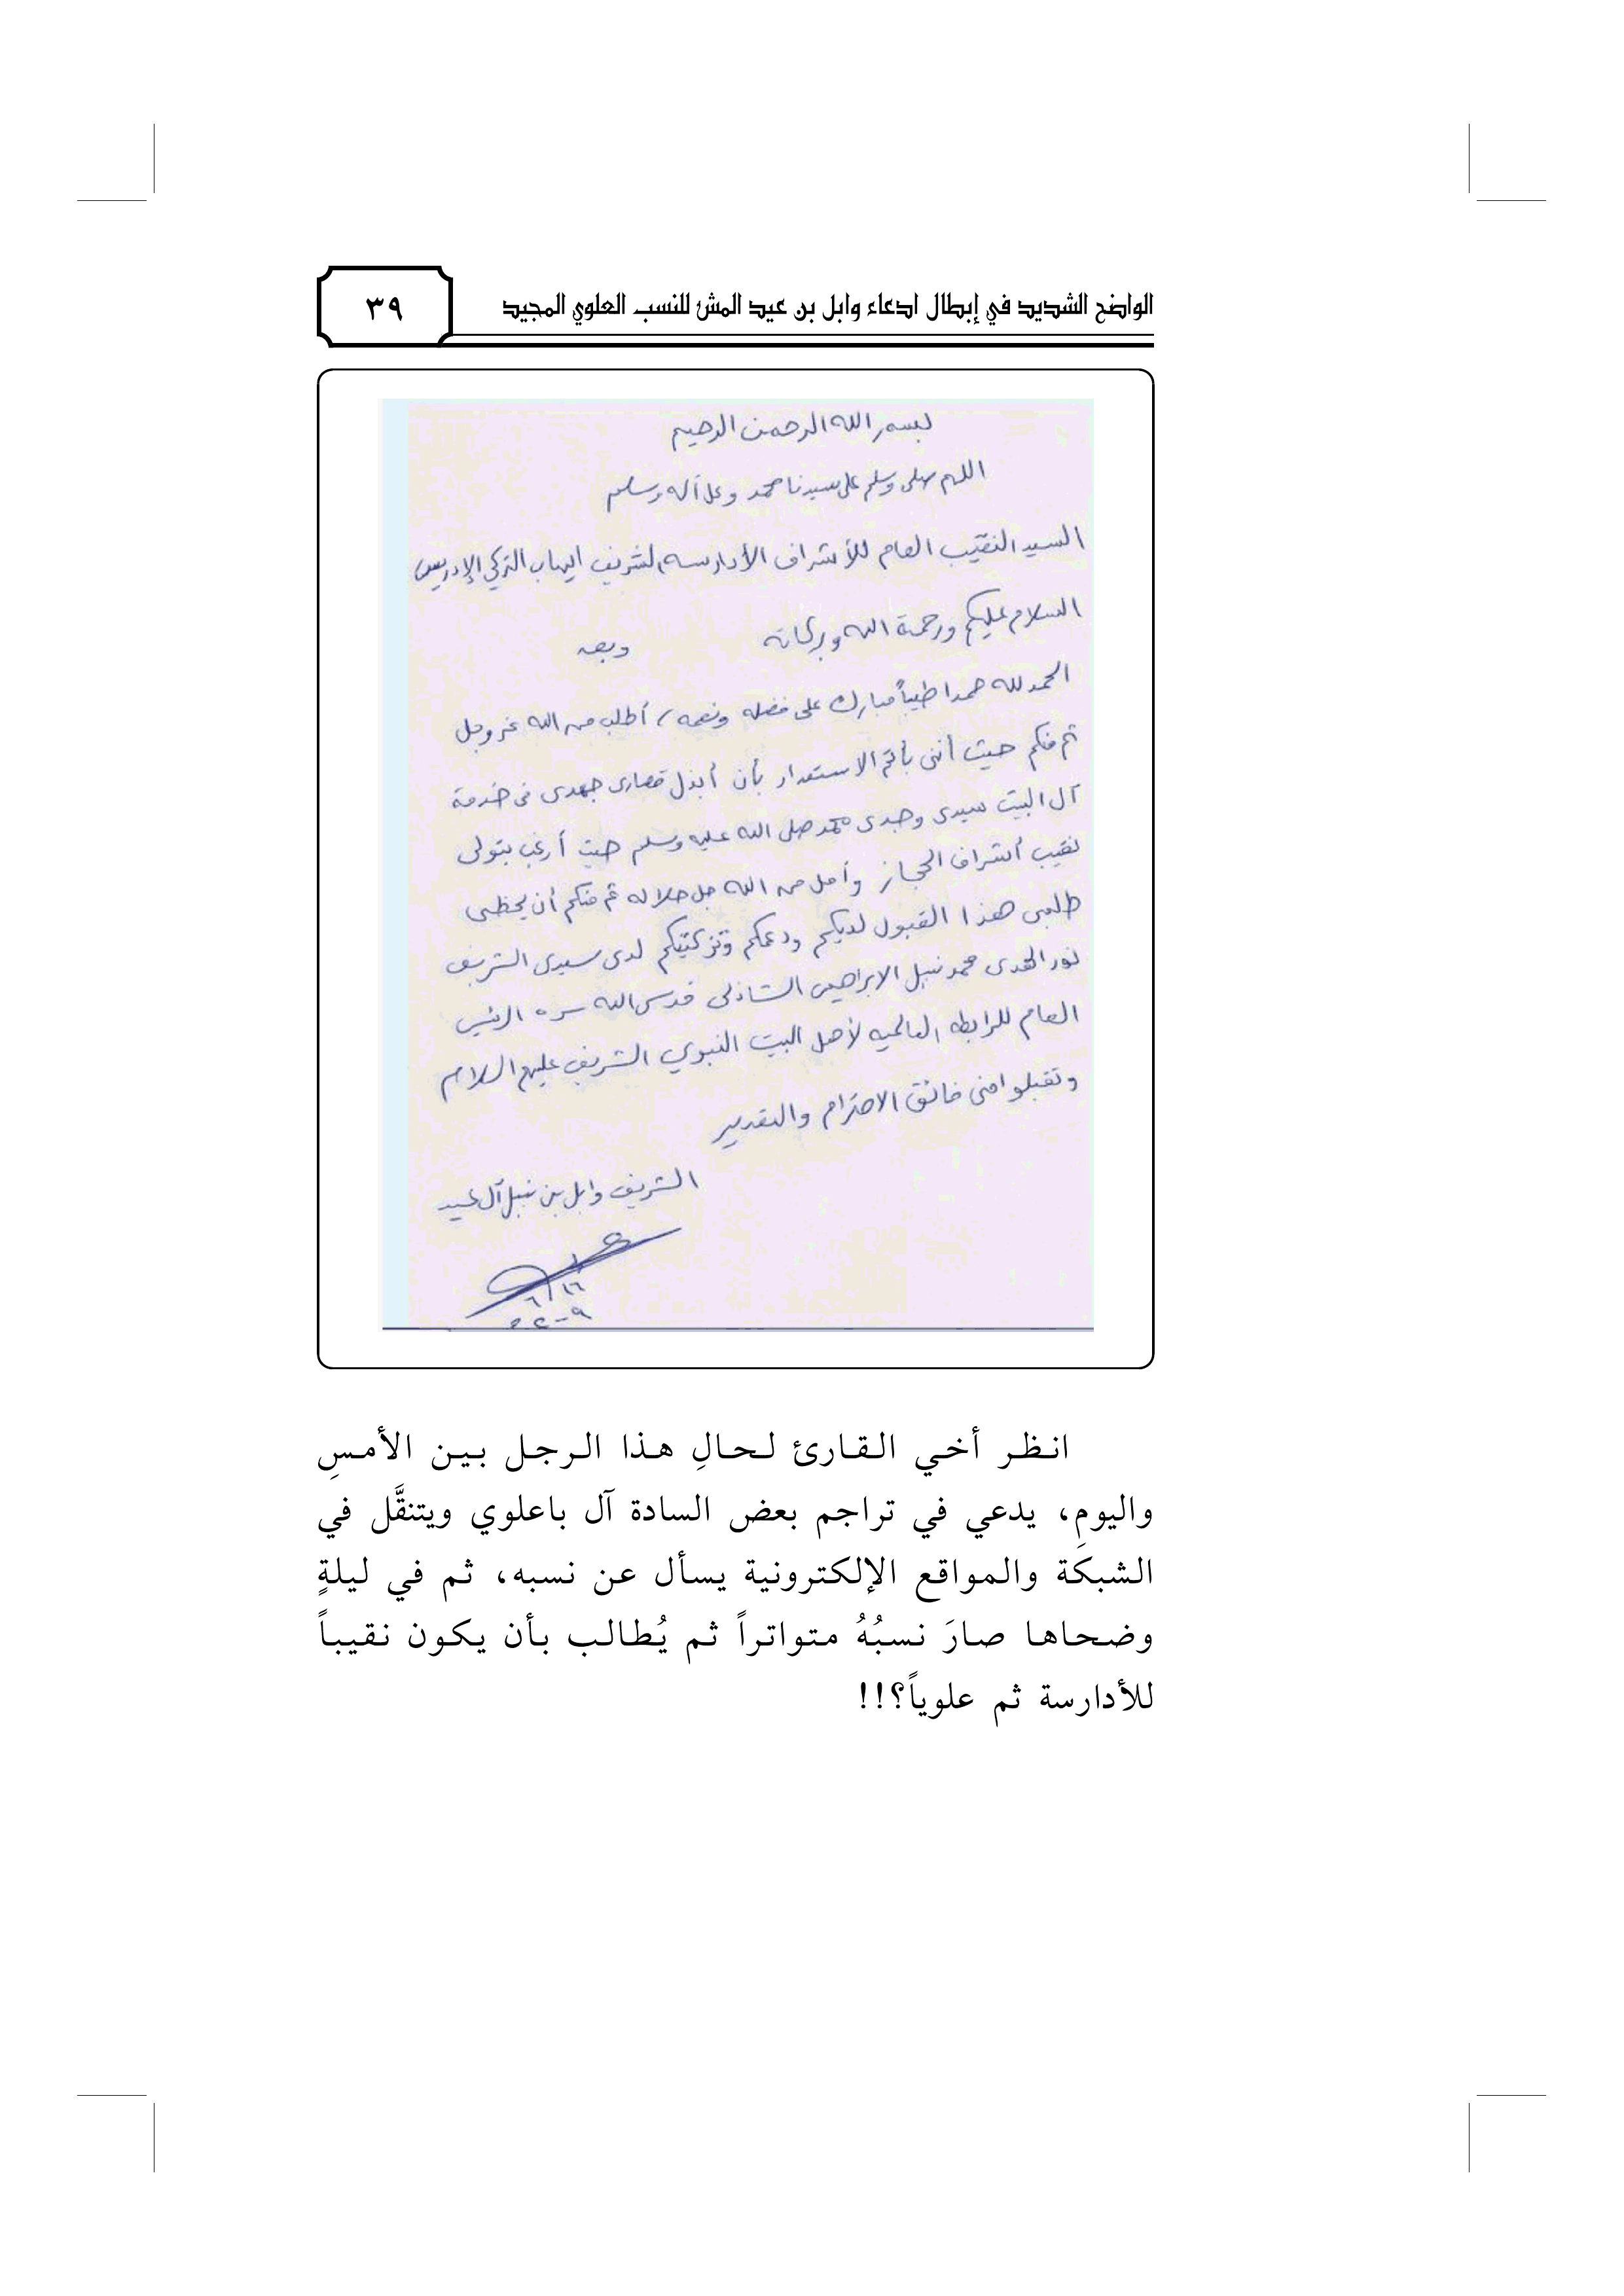 الواضح الشديد في إبطال ادعاء وابل بن عيد المش للنسب العلوي المجيد
٣٩
بسم الله الرحمن الرحيم
اللهم صلى وسلم على سيدنا محمد وعلى آله وسلم
السيد النقيب العام للأشراف الأدارسه الشريف ايهاب التركي الإدريسي
السلام عليكم ورحمة الله وبركاته وبعد
الحمد لله حمدا طيباً مبارك على فضله ونعمه / أطلب من الله عز وجل
ثم منكم حيث أننى بأتم الاستعداد بأن أبذل قصارى جهدى فى خدمة
آل البيت سيدى وجدى محمد صلى الله عليه وسلم حيث أرغب بتولى
نقيب أشراف الحجاز وآمل من الله جل جلاله ثم منكم أن يحظى
طلبى هذا القبول لديكم ودعمكم وتزكيتكم لدى سيدى الشريف
نور الهدى محمد نبيل الابراهيمى الشاذلى قدس الله سره الرئيس
العام للرابطه العالميه لأهل البيت النبوي الشريف عليهم السلام
وتقبلوا منى فائق الاحترام والتقدير
الشريف وابل بن نبيل آل عيد
٦/١٦
٢٠٠٩م
انظر أخي القارئ لحالِ هذا الرجل بين الأمسِ
واليومِ، يدعي في تراجم بعض السادة آل باعلوي ويتنقَّل في
الشبكَة والمواقع الإلكترونية يسأل عن نسبه، ثم في ليلةٍ
وضحاها صارَ نسبُهُ متواتراً ثم يُطالب بأن يكون نقيباً
للأدارسة ثم علوياً؟!!